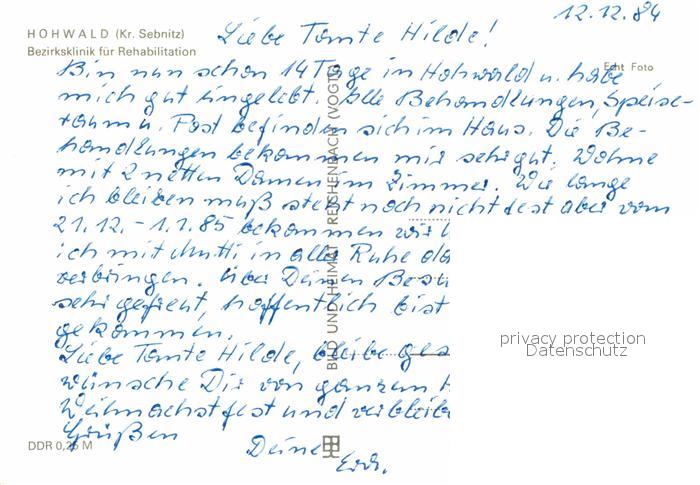 12.12.84
HOHWALD (Kr. Sebnitz)
Bezirksklinik für Rehabilitation
Echt Foto
Liebe Tante Hilde!
Bin nun schon 14 Tage in Hohwald u. habe
mich gut eingelebt. Alle Behandlungen, Speise-
raum u. Post befinden sich im Haus. Die Be-
handlungen bekommen mir sehr gut. Wohne
mit 2 netten Damen im Zimmer. Wie lange
ich bleiben muß steht noch nicht fest aber vom
21.12. - 1.1.85 bekommen wir
ich mit Mutti in aller Ruhe
verbringen. Über Deinen
sehr gefreut, hoffentlich bist
gekommen.
Liebe Tante Hilde, bleibe
wünsche Dir von ganzem
Weihnachtsfest und
Grüßen
Deine
BILD UND HEIMAT REICHENBACH (VOGTL)
DDR 0,25 M
privacy protection
Datenschutz